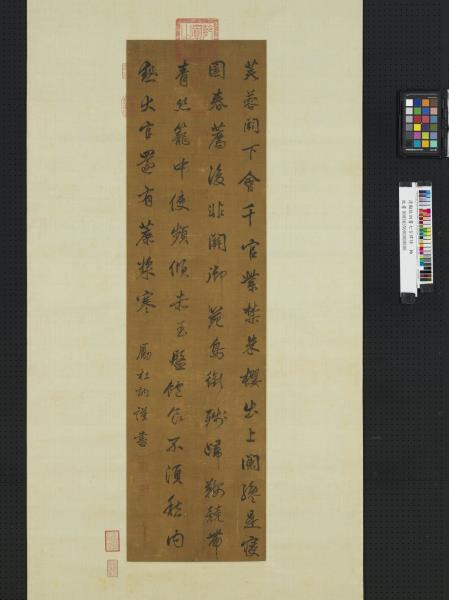 芙蓉闕下會千官紫禁朱櫻出上闌纔是寢
園春薦後非關御苑鳥銜殘歸鞍競帶
青絲籠中使頻傾赤玉盤飽食不須愁內
熱大官還有蔗漿寒 勵杜訥謹書